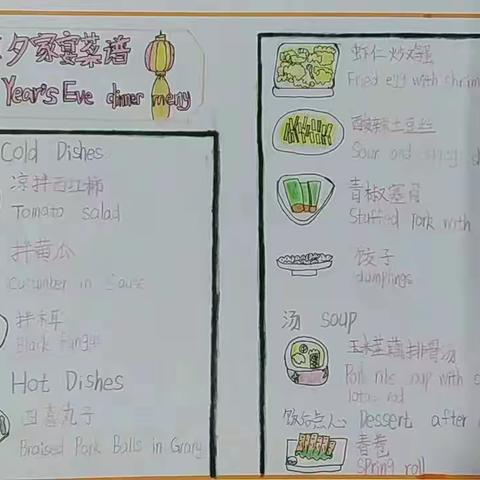 夕家宴菜谱
Year's Eve dinner meny
Cold Dishes
凉拌西红柿
Tomato salad
拌黄瓜
cucumber in sauce
拌木耳
Black fungus
Hot Dishes
四喜丸子
Braised Pork Balls in Gravy
虾仁炒鸡蛋
Fried egg with shrim
酸辣土豆丝
Sour and
青椒塞肉
Stuffed Pork with
饺子
dumplings
汤 soup
玉米莲藕排骨汤
Pork ribs soup with
lotus
饭后点心 Dessert after
春卷
spring roll